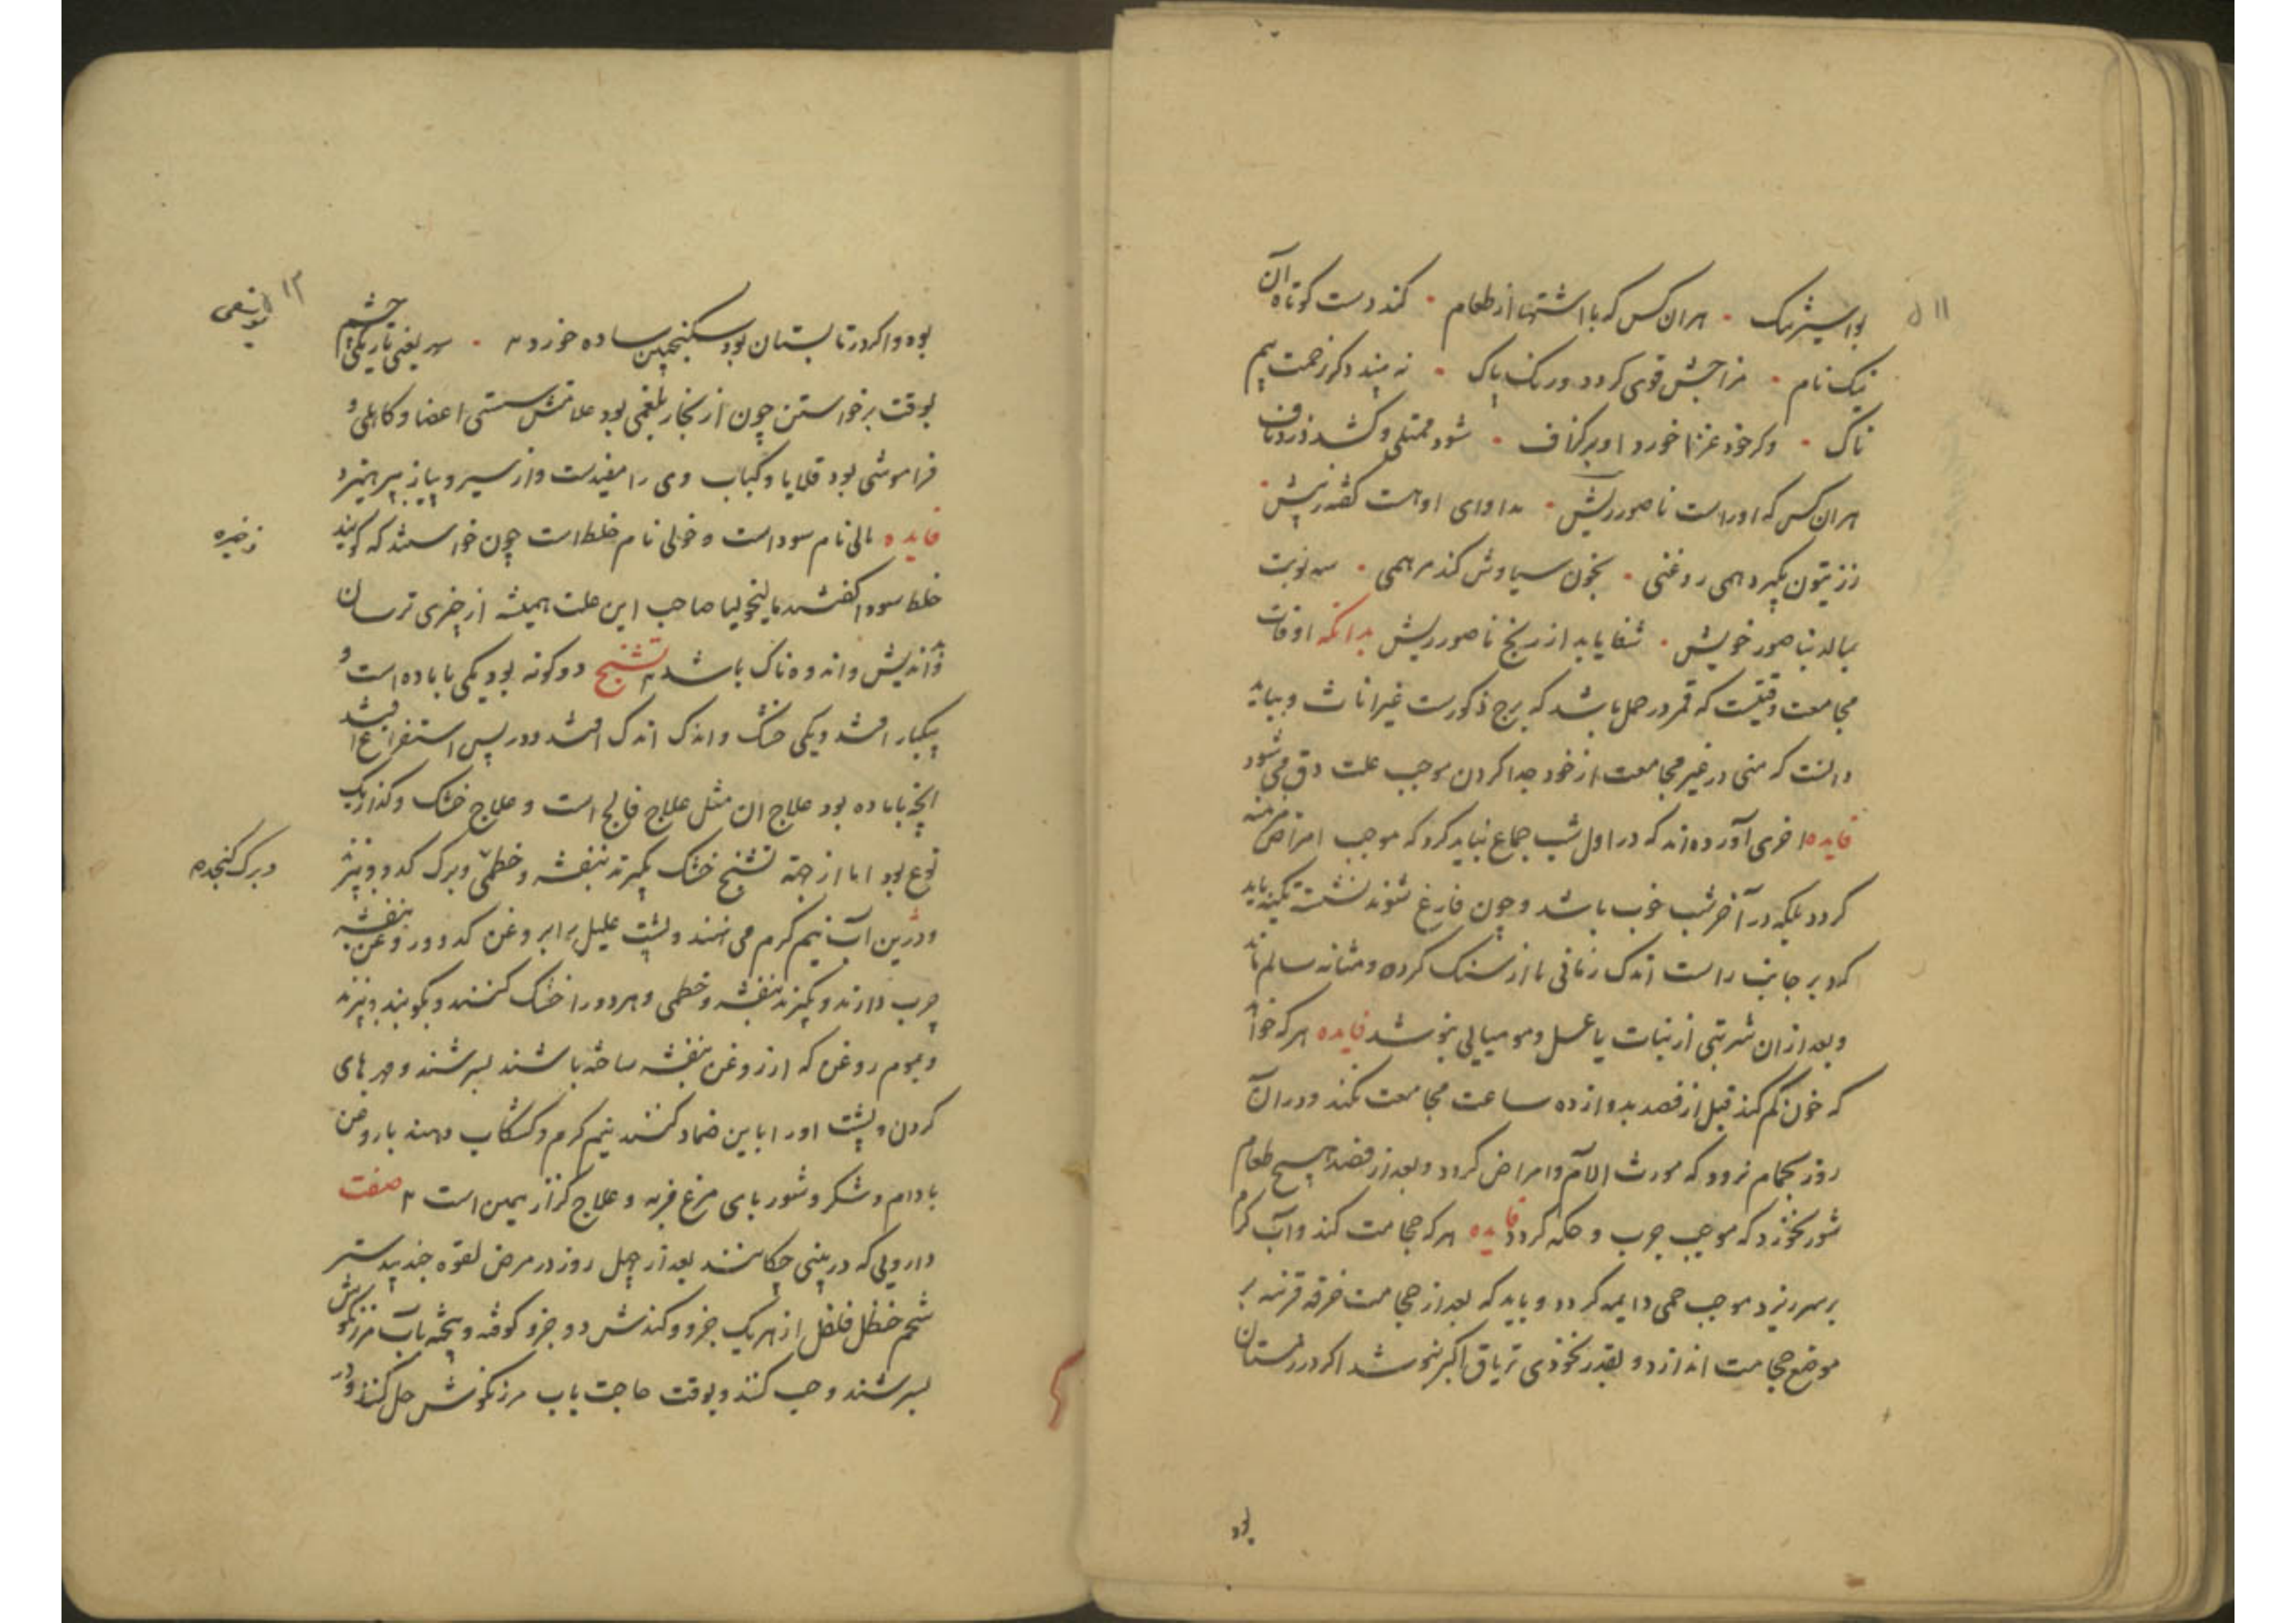 بواسیر نیک • هران کس که با اشتها از طعام • کند دست کوتاه آن
نیک نام • مزاجش قوی کردد و رنک پاک • نه بیند دکر زحمت بیم
ناک • وکر خود غذا خورد او بر کزاف • شود ممتلی و کشد درد ناف
هران کس که اوراست ناصور ریش • مداوای او هست
ز زیتون بکیرد همی روغنی • بخون سیاوش کند مرهمی • سه نوبت
بمالد بناصور خویش • شفا یابد از رنج ناصور ریش بدانکه اوقات
مجامعت وقتیست که قمر در حمل باشد که برج ذکورست غیر اناث و بباید
دانست که منی در غیر مجامعت از خود جدا کردن موجب علت دق می شود
فایده اخری آورده اند که در اول شب جماع نباید کرد که موجب امراض مزمنه
کردد بلکه در آخر شب خوب باشد و چون فارغ شوند نشسته تکیه باید
کرد بر جانب راست اندک زمانی تا از سنک کرده و مثانه سالم ماند
و بعد از ان شربتی از نبات یا عسل و مومیایی بنوشد فایده هر که خواهد
که خون کم کند قبل از فصد بدوازده ساعت مجامعت نکند و در ان
روز بحمام نرود که مورث الام و امراض کردد و بعد از فصد هیچ طعام
شور نخورد که موجب جرب و حکه کردد فایده هر که حجامت کند و آب کرم
بر سر ریزد موجب حمی دایمه کردد و باید که بعد از حجامت خرقه بر
موضع حجامت اندازد و بقدر نخودی تریاق اکبر بنوشد اکر در زمستان
بود
بود و اکر در تابستان بود سکنجبین ساده خورد • سدر یعنی تاریکی چشم
بوقت برخواستن چون از بخار بلغمی بود علامتش سستی اعضا و کاهلی و
فراموشی بود قلایا و کباب وی را مفیدست و از سیر و پیاز بپرهیزد
فایده مالی نام سوداست و خولی نام خلط است چون خواستند که کویند
خلط سودا کفتند مالیخولیا صاحب این علت همیشه از چیزی ترسان
و اندیش و اندوه ناک باشد تشنج دو کونه بود یکی با ماده است و
بیکبار افتد و یکی خشک و اندک اندک افتد و در پس استفراغ افتد
انچه با ماده بود علاج ان مثل علاج فالج است و علاج خشک و کزاز یک
نوع بود اما از جهة تشنج خشک بکیرند بنفشه و خطمی و برک کدو و بپزند
و درین آب نیم کرم می نهند و پشت علیل را بروغن کدو و روغن بنفشه
چرب دارند و بکیرند بنفشه و خطمی و هر دو را خشک کنند و بکوبند و بپزند
و بموم روغن که از روغن بنفشه ساخته باشند بسرشند و مهرهای
کردن و پشت او را باین ضماد کنند نیم کرم و کشکاب دهند با روغن
بادام و شکر و شوربای مرغ فربه و علاج کزاز همین است صفت
دارویی که در بینی چکانند بعد از چهل روز در مرض لقوه جندبیدستر
شحم حنظل فلفل از هریک جزو و کندش دو جزو کوفته و بیخته بآب مرزنکوش
بسرشند و حب کنند و بوقت حاجت بآب مرزنکوش حل کنند و در
و برک کنجد